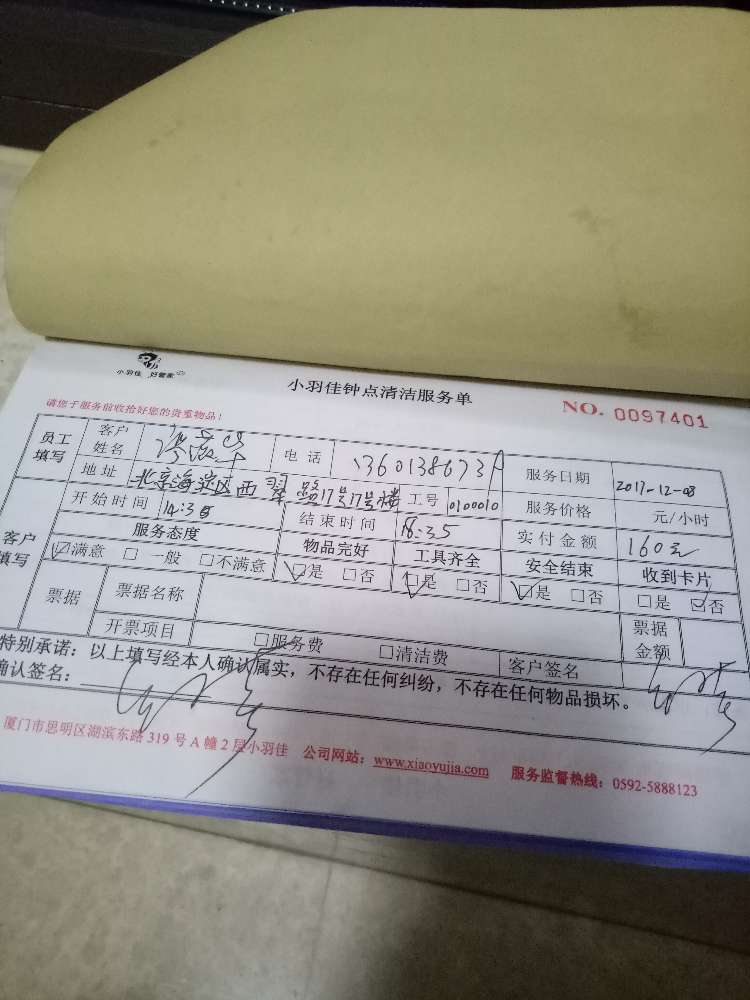 小羽佳 好管家
小羽佳钟点清洁服务单
NO. 0097401
请您于服务前收拾好您的贵重物品！
员工填写 客户姓名 电话 服务日期 2017-12-08
地址 北京海淀区西翠路17号17号楼 工号 0100010 服务价格 元/小时
客户填写 开始时间 14:30 结束时间 18:35 实付金额 160元
服务态度 物品完好 工具齐全 安全结束 收到卡片
☑满意 □一般 □不满意 ☑是 □否 ☑是 □否 ☑是 □否 □是 ☑否
票据 票据名称 票据金额
开票项目 □服务费 □清洁费 客户签名
特别承诺：以上填写经本人确认属实，不存在任何纠纷，不存在任何物品损坏。
确认签名：
厦门市思明区湖滨东路 319 号 A 幢 2 层小羽佳 公司网站：www.xiaoyujia.com 服务监督热线：0592-5888123